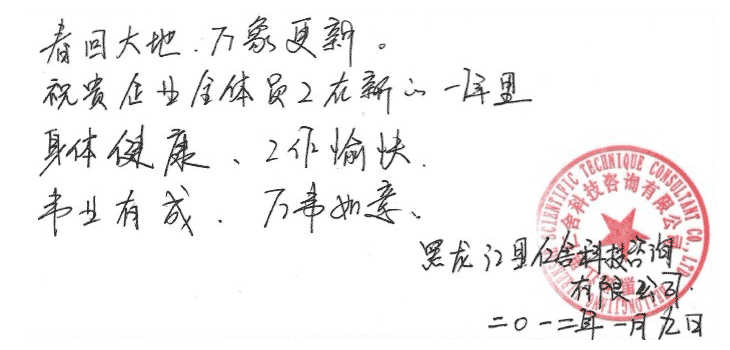 春回大地、万象更新。
祝贵企业全体员工在新的一年里
身体健康、工作愉快.
事业有成、万事如意、
黑龙江里仁舍科技咨询
有限公司.
二〇一二年一月九日
SCIENTIFIC TECHNIQUE CONSULTANT CO., LTD.
舍科技咨询有限公司